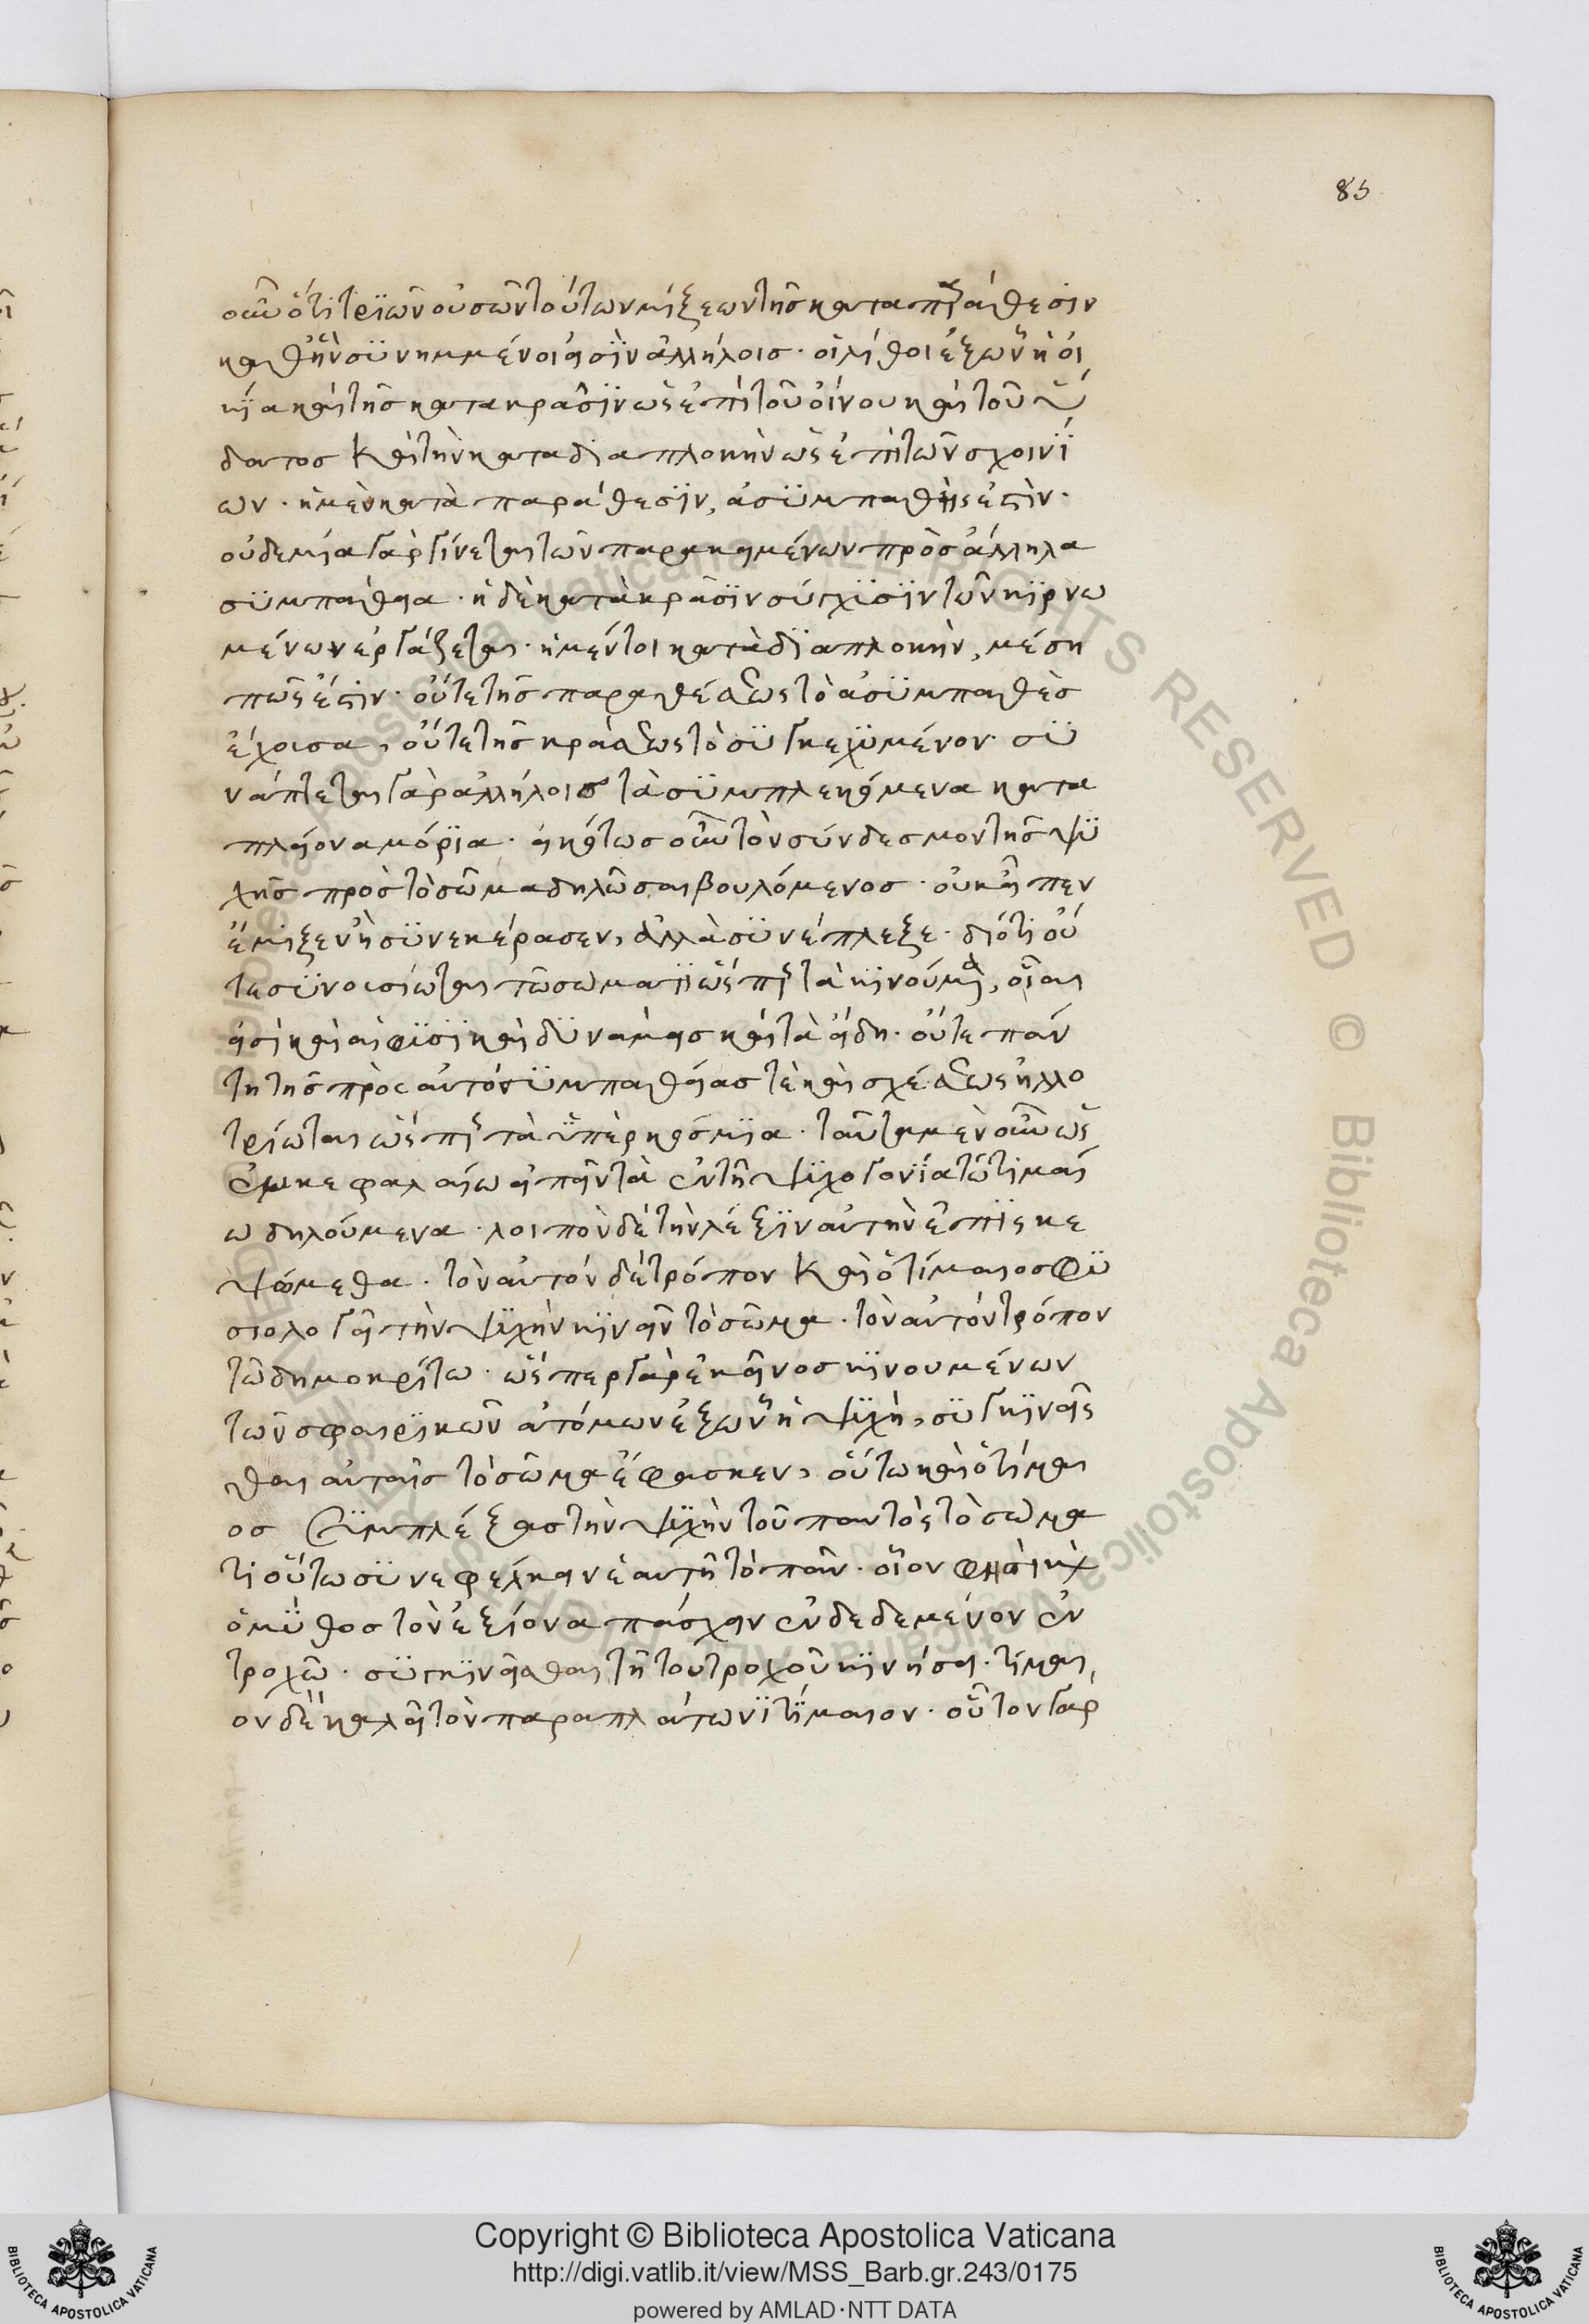 85
οὖν ὅτι τριῶν οὐσῶν τούτων μίξεων τῆς κατα παράθεσιν
καθ ἣν συνημμένοι εἰσὶν ἀλλήλοις · οἱ λίθοι ἐξ ὧν ἡ οἰ
κία καὶ τῆς κατα κρᾶσιν ὡς ἐπὶ τοῦ οἴνου καὶ τοῦ ὕ
δατος καὶ τὴν κατα διαπλοκὴν ὡς ἐπὶ τῶν σχοινί
ων · ἡ μὲν κατὰ παράθεσιν, ἀσυμπαθής ἐστιν ·
οὐδεμία γὰρ γίνεται τῶν παρακειμένων πρὸς ἄλληλα
συμπάθεια · ἡ δὲ κατὰ κρᾶσιν σύγχυσιν τῶν κιρνω
μένων ἐργάζεται · ἡ μέντοι κατὰ διαπλοκὴν, μέση
πῶς ἐστιν · οὔτε τῆς παραθέσεως τὸ ἀσυμπαθὲς
ἔχουσα, οὔτε τῆς κράσεως τὸ συγκεχυμένον · συ
νάπτεται γὰρ ἀλλήλοις τὰ συμπλεκόμενα κατα
πλείονα μόρια · εἰκότως οὖν τὸν σύνδεσμον τῆς ψυ
χῆς πρὸς τὸ σῶμα δηλῶσαι βουλόμενος · οὐκ εἶπεν
ἔμιξεν ἢ συνεκέρασεν, ἀλλὰ συνέπλεξε · διότι οὔ
τε συνουσίωται τῶ σώματι ὡς ἐπι τὰ κινούμενα, οἷαι
εἰσὶ καὶ αἱ φύσι καὶ δυνάμεις καὶ τὰ εἴδη · οὔτε πάν
τη τῆς πρὸς αὐτὸ συμπαθείας τὲ καὶ σχέσεως ἠλλο
τρίωται ὡς ἐπι τὰ ὑπερκόσμια · ταῦτα μὲν οὖν ὡς
ἐν κεφαλαίω εἰπεῖν τὰ ἐν τῆ ψυχογονία τῶ τιμαί
ω δηλούμενα · λοιπὸν δὲ τὴν λέξιν αὐτὴν ἐπισκε
ψώμεθα · τὸν αὐτὸν δὲ τρόπον καὶ ὁ τίμαιος φυ
σιολογεῖ τὴν ψυχὴν κινεῖν τὸ σῶμα · τὸν αὐτὸν τρόπον
τῶ δημοκρίτω · ὥσπερ γὰρ ἐκεῖνος κινουμένων
τῶν σφαιρικῶν ἀτόμων ἐξ ὧν ἡ ψυχὴ, συγκινεῖσ
θαι αὐταῖς τὸ σῶμα ἔφασκεν, οὕτω καὶ ὁ τίμαι
ος συμπλέξας τὴν ψυχὴν τοῦ παντὸς τὸ σώμα
τι οὕτω συνεφέλκειν ἑαυτῆ τὸ πᾶν · οἷον φησὶ καὶ
ὁ μῦθος τὸν ἐξίονα πάσχειν ἐνδεδεμένον ἐν
τροχῶ · συγκινεῖσθαι τῆ του τροχοῦ κινήσει · τίμαι
ον δὲ καλεῖ τὸν παρα πλάτωνι τίμαιον · οὗτον γὰρ
Copyright © Biblioteca Apostolica Vaticana
http://digi.vatlib.it/view/MSS_Barb.gr.243/0175
powered by AMLAD·NTT DATA